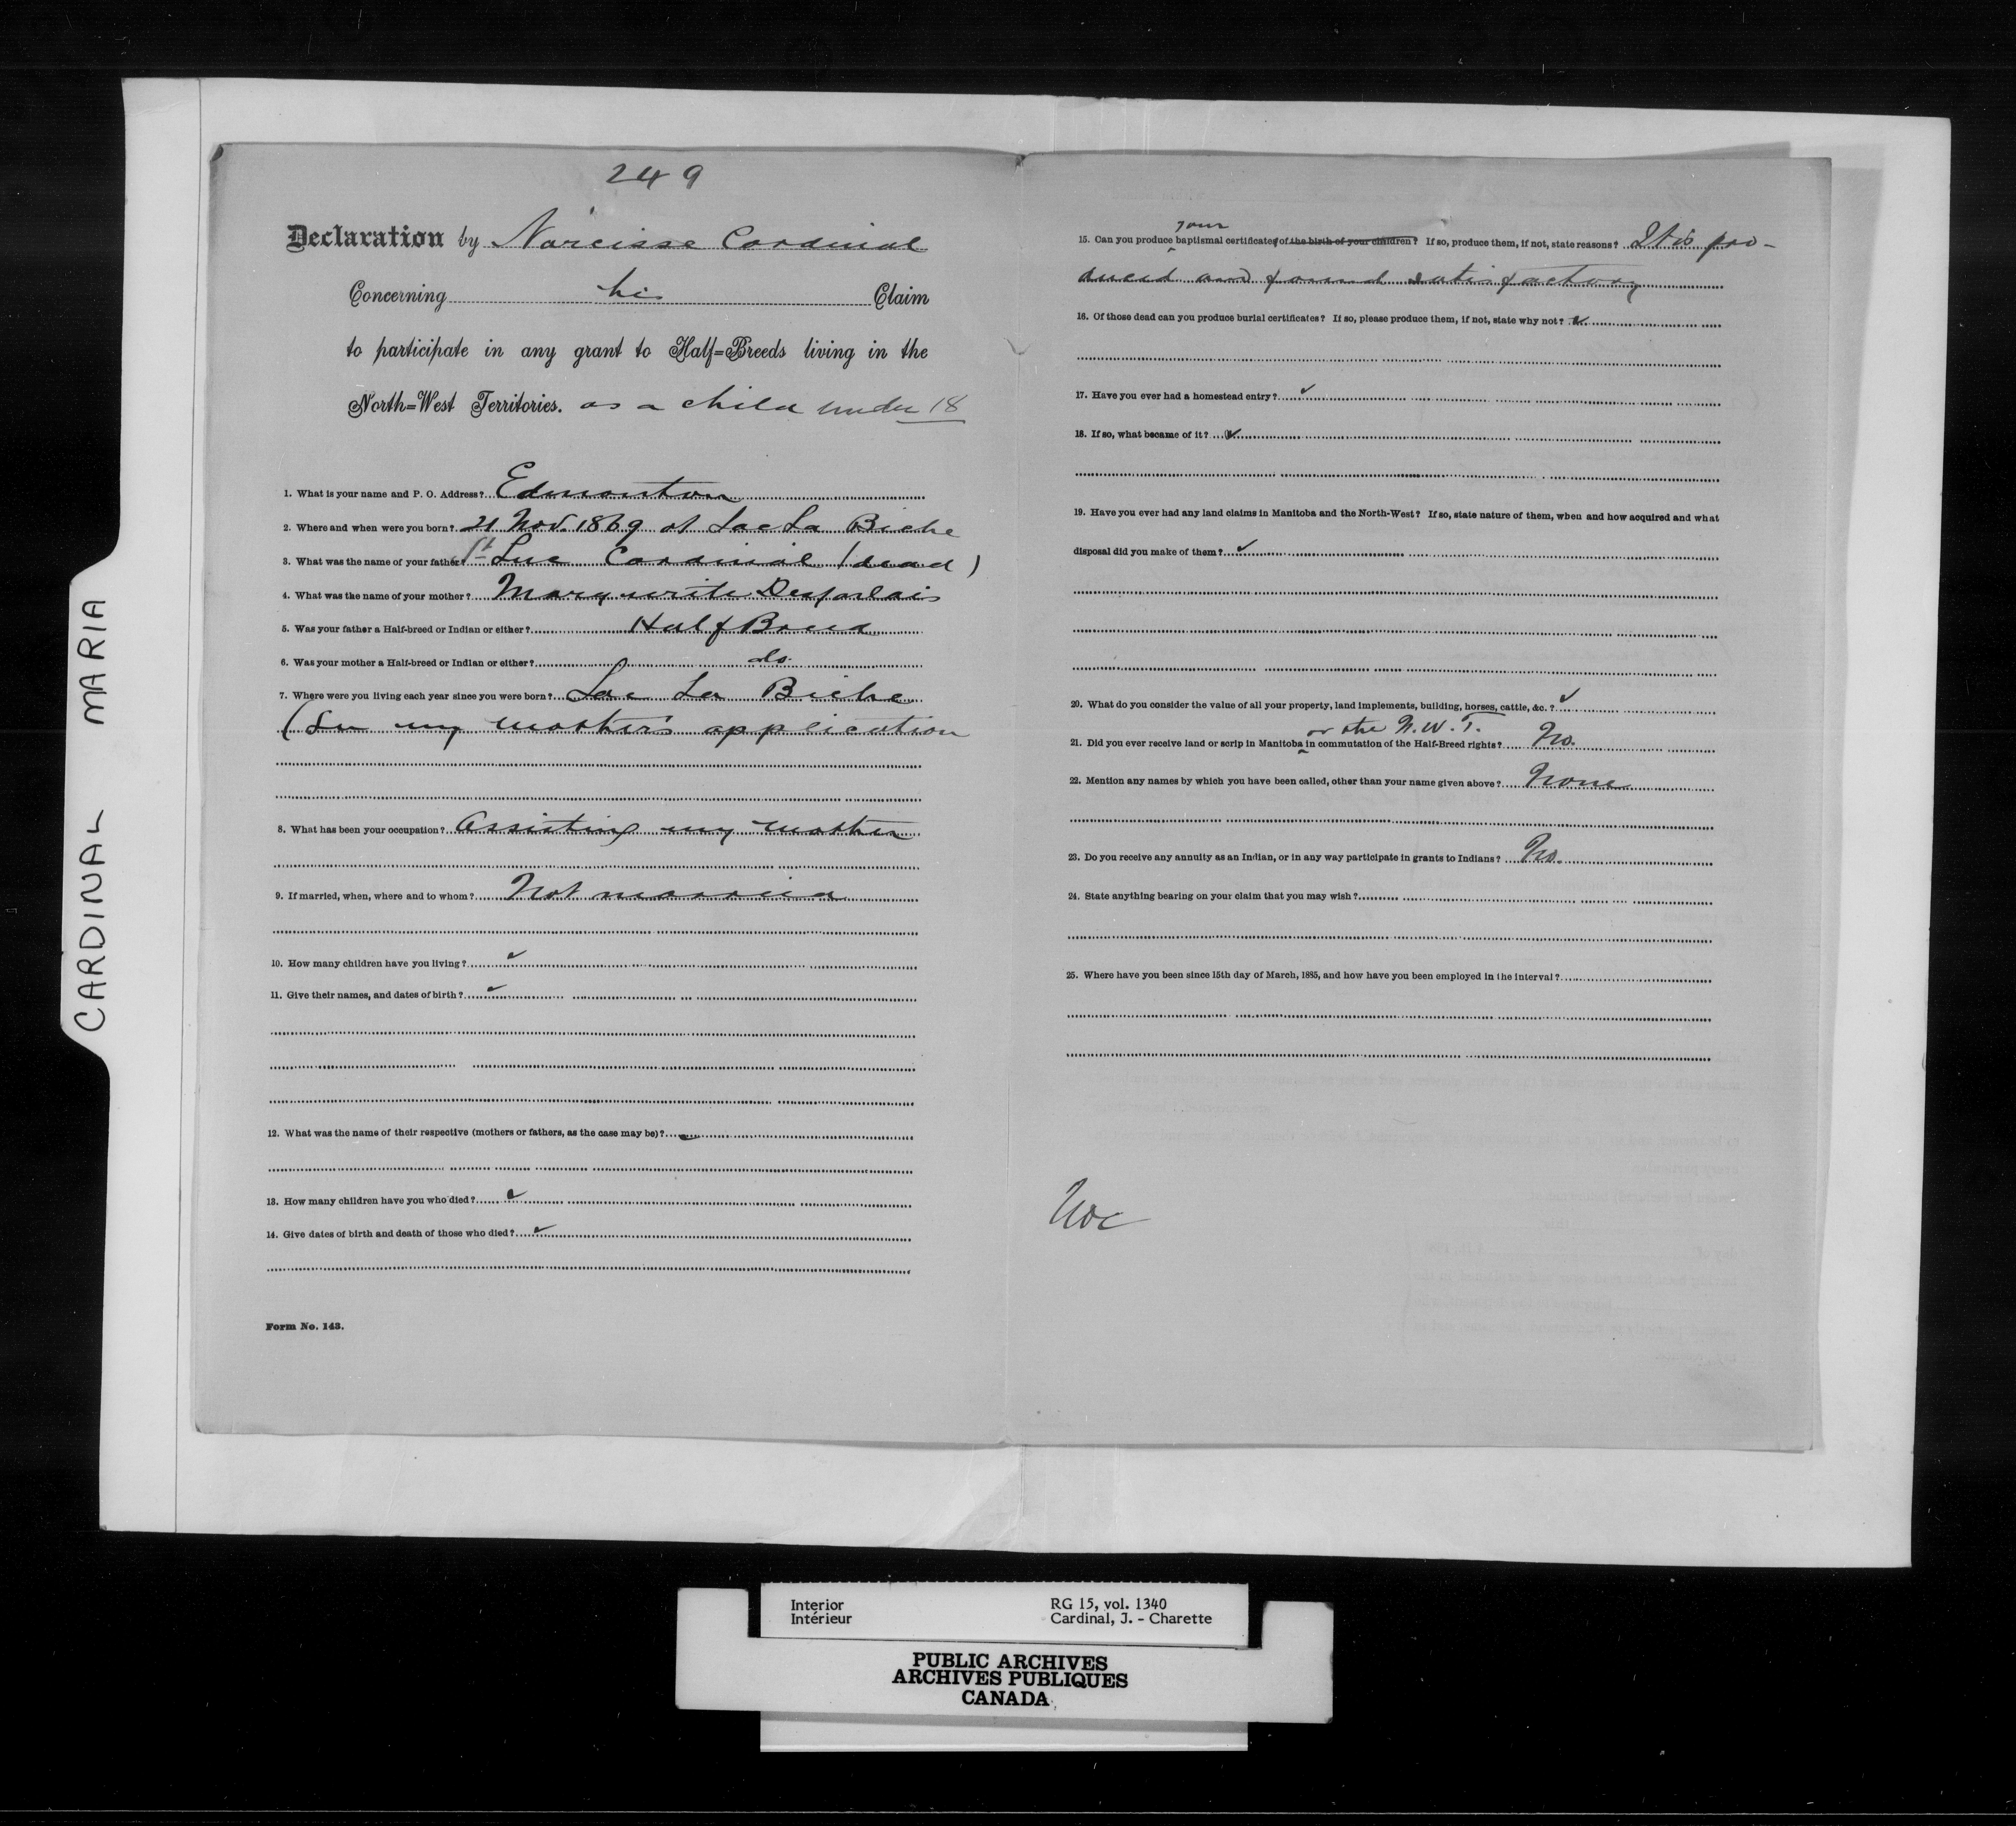 CARDINAL MARIA
249
Declaration by Narcisse Cardinal
Concerning his Claim
to participate in any grant to Half=Breeds living in the
North=West Territories. as a child under 18
1. What is your name and P. O. Address? Edmonton
2. Where and when were you born? 21 Nov. 1869 at Lac La Biche
3. What was the name of your father? St Luc Cardinal (dead)
4. What was the name of your mother? Marguerite Desjarlais
5. Was your father a Half-breed or Indian or either? Half Breed
6. Was your mother a Half-breed or Indian or either? do.
7. Where were you living each year since you were born? Lac La Biche
(See my mother's application
8. What has been your occupation? Assisting my mother
9. If married, when, where and to whom? Not married
10. How many children have you living? ✓
11. Give their names, and dates of birth? ✓
12. What was the name of their respective (mothers or fathers, as the case may be)? ✓
13. How many children have you who died? ✓
14. Give dates of birth and death of those who died? ✓
Form No. 143.
your
15. Can you produce baptismal certificates of the birth of your children? If so, produce them, if not, state reasons? It is pro-
duced and found satisfactory
16. Of those dead can you produce burial certificates? If so, please produce them, if not, state why not? ✓
17. Have you ever had a homestead entry? ✓
18. If so, what became of it? ✓
19. Have you ever had any land claims in Manitoba and the North-West? If so, state nature of them, when and how acquired and what
disposal did you make of them? ✓
20. What do you consider the value of all your property, land implements, building, horses, cattle, &c.? ✓
or the N.W.T.
21. Did you ever receive land or scrip in Manitoba in commutation of the Half-Breed rights? No.
22. Mention any names by which you have been called, other than your name given above? None
23. Do you receive any annuity as an Indian, or in any way participate in grants to Indians? No.
24. State anything bearing on your claim that you may wish?
25. Where have you been since 15th day of March, 1885, and how have you been employed in the interval?
Interior RG 15, vol. 1340
Intérieur Cardinal, J. - Charette
PUBLIC ARCHIVES
ARCHIVES PUBLIQUES
CANADA